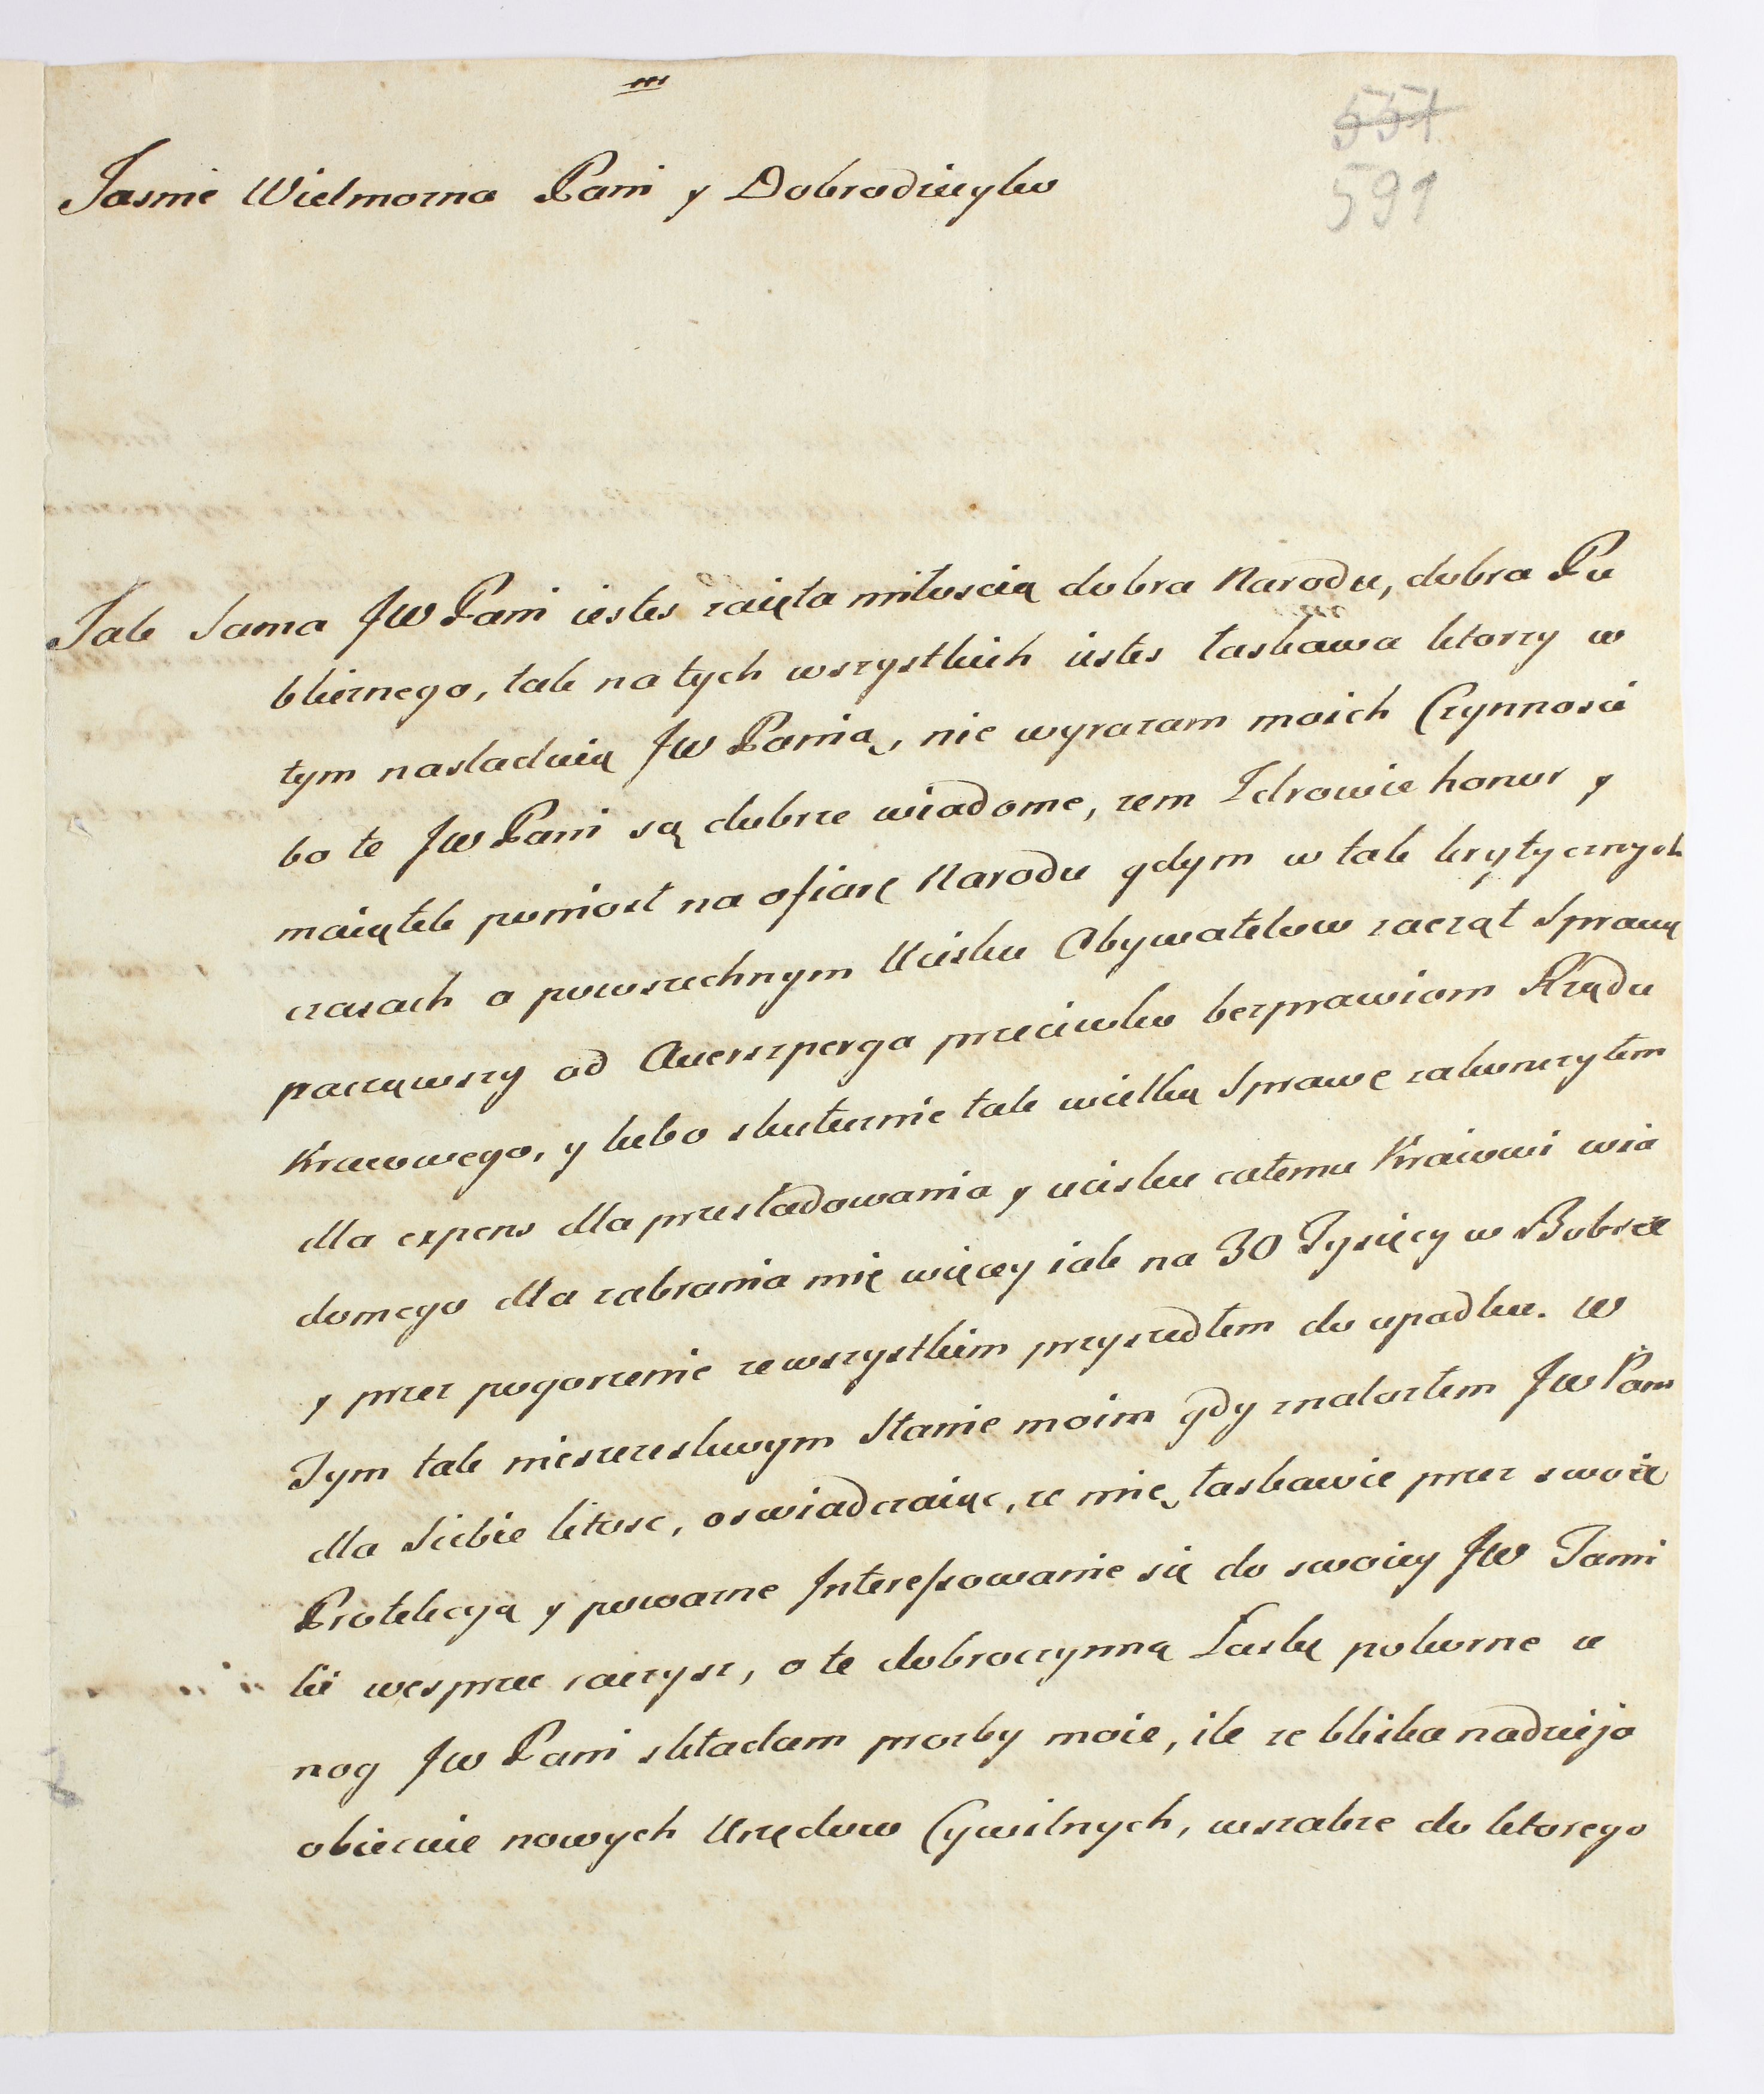 551
591
Jasnie Wielmozna Pani y Dobrodzieyko
Jak Sama JW Pani iestes zaięta miłoscią dobra Narodu, dobra Pu
blicznego, tak na tych wszystkich iestes łaskawa ktorzy w
tym nasladuią JW Panią, nie wyrazam moich Czynnosci
bo te JW Pani są dobrze wiadome, zem Zdrowie honor y
maiątek poniosł na ofiarę Narodu gdym w tak krytycznych
czasach o powszechnym Ucisku Obywatelow zaczął Sprawę
począwszy od Auerszperga przeciwko bezprawiom Rządu
Kraiowego, y lubo skutecznie tak wielką Sprawę zakonczyłem
dla expens dla prześladowania y ucisku całemu Kraiowi wia
domego dla zabrania mię więcey iak na 30 Tysięcy w Bobrce
y przez pogorzenie zewszystkim przyszedłem do upadku. W
Tym tak nieszczesliwym Stanie moim gdy znalazłem JW Pani
dla Siebie litosc, oswiadczaiąc, ze mię łaskawie przez swoię
Protekcyą y powazne Interessowanie się do swoiey JW Pani
ki wesprzec raczysz, o te dobroczynną Łaskę pokorne u
nog JW Pani składam prozby moie, ile ze bliska nadzieja
obiecuie nowych Urzędow Cywilnych, wszakze do ktorego